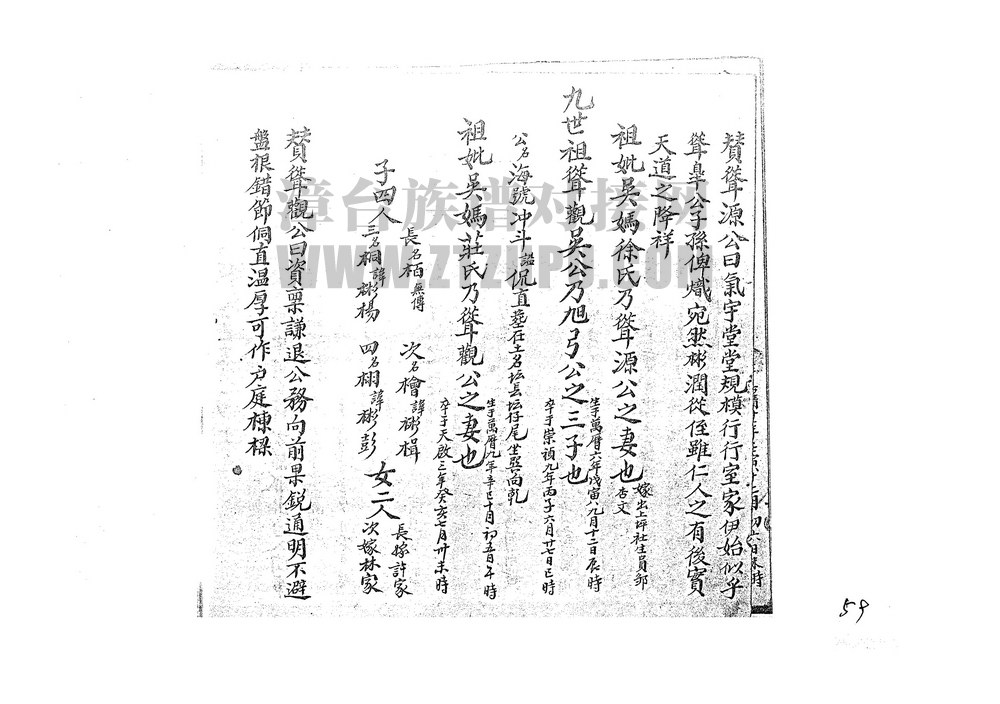 賛聳源公曰氣宇堂堂規模行行室家伊始似乎
聳皐公子孫俾熾宛然彬潤從侄雖仁人之有後實
天道之降祥
祖妣吳媽徐氏乃聳源公之妻也
嫁出上坪社生員郭
杏文
九世祖聳觀吳公乃旭弓公之三子也
生于萬曆六年戊寅八月十二日辰時
卒于崇禎九年丙子六月廿七日巳時
公名海號冲斗謚侃直塟在土名坛長坛仔尾坐巽向乾
祖妣吳媽莊氏乃聳觀公之妻也
生于萬曆九年辛巳十月初五日午時
卒于天啟三年癸亥七月卅未時
子四人
長名栢無傳
次名檜諱彬楫
三名桐諱彬楊
四名栩諱彬彭
女二人
長嫁許家
次嫁林家
賛聳觀公曰資稟謙退公務向前果銳通明不避
盤根錯節侗直温厚可作户庭棟樑
漳台族谱对接网
WWW.ZTZUPU.COM
59